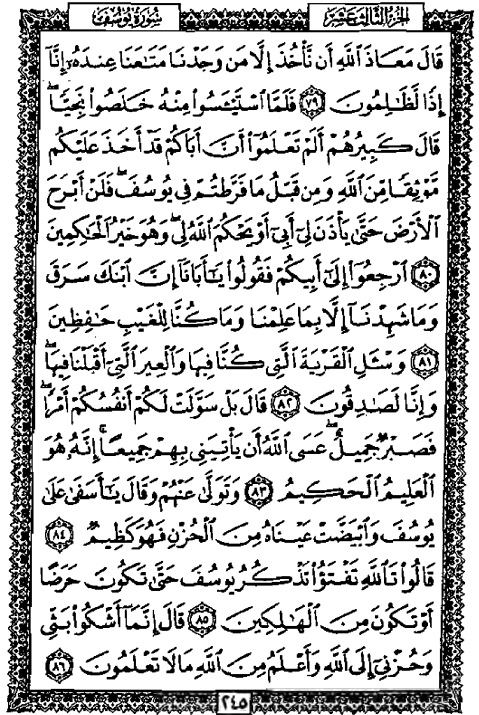 الجزء الثالث عشر
سورة يوسف
قَالَ مَعَاذَ اللَّهِ أَن نَّأْخُذَ إِلَّا مَن وَجَدْنَا مَتَاعَنَا عِندَهُ إِنَّا
إِذًا لَّظَالِمُونَ ٧٩ فَلَمَّا اسْتَيْأَسُوا مِنْهُ خَلَصُوا نَجِيًّا
قَالَ كَبِيرُهُمْ أَلَمْ تَعْلَمُوا أَنَّ أَبَاكُمْ قَدْ أَخَذَ عَلَيْكُم
مَّوْثِقًا مِّنَ اللَّهِ وَمِن قَبْلُ مَا فَرَّطتُمْ فِي يُوسُفَ فَلَنْ أَبْرَحَ
الْأَرْضَ حَتَّىٰ يَأْذَنَ لِي أَبِي أَوْ يَحْكُمَ اللَّهُ لِي وَهُوَ خَيْرُ الْحَاكِمِينَ
٨٠ ارْجِعُوا إِلَىٰ أَبِيكُمْ فَقُولُوا يَا أَبَانَا إِنَّ ابْنَكَ سَرَقَ
وَمَا شَهِدْنَا إِلَّا بِمَا عَلِمْنَا وَمَا كُنَّا لِلْغَيْبِ حَافِظِينَ
٨١ وَسْئَلِ الْقَرْيَةَ الَّتِي كُنَّا فِيهَا وَالْعِيرَ الَّتِي أَقْبَلْنَا فِيهَا
وَإِنَّا لَصَادِقُونَ ٨٢ قَالَ بَلْ سَوَّلَتْ لَكُمْ أَنفُسُكُمْ أَمْرًا
فَصَبْرٌ جَمِيلٌ عَسَى اللَّهُ أَن يَأْتِيَنِي بِهِمْ جَمِيعًا إِنَّهُ هُوَ
الْعَلِيمُ الْحَكِيمُ ٨٣ وَتَوَلَّىٰ عَنْهُمْ وَقَالَ يَا أَسَفَىٰ عَلَىٰ
يُوسُفَ وَابْيَضَّتْ عَيْنَاهُ مِنَ الْحُزْنِ فَهُوَ كَظِيمٌ ٨٤
قَالُوا تَاللَّهِ تَفْتَؤُا تَذْكُرُ يُوسُفَ حَتَّىٰ تَكُونَ حَرَضًا
أَوْ تَكُونَ مِنَ الْهَالِكِينَ ٨٥ قَالَ إِنَّمَا أَشْكُوا بَثِّي
وَحُزْنِي إِلَى اللَّهِ وَأَعْلَمُ مِنَ اللَّهِ مَا لَا تَعْلَمُونَ ٨٦
٢٤٥